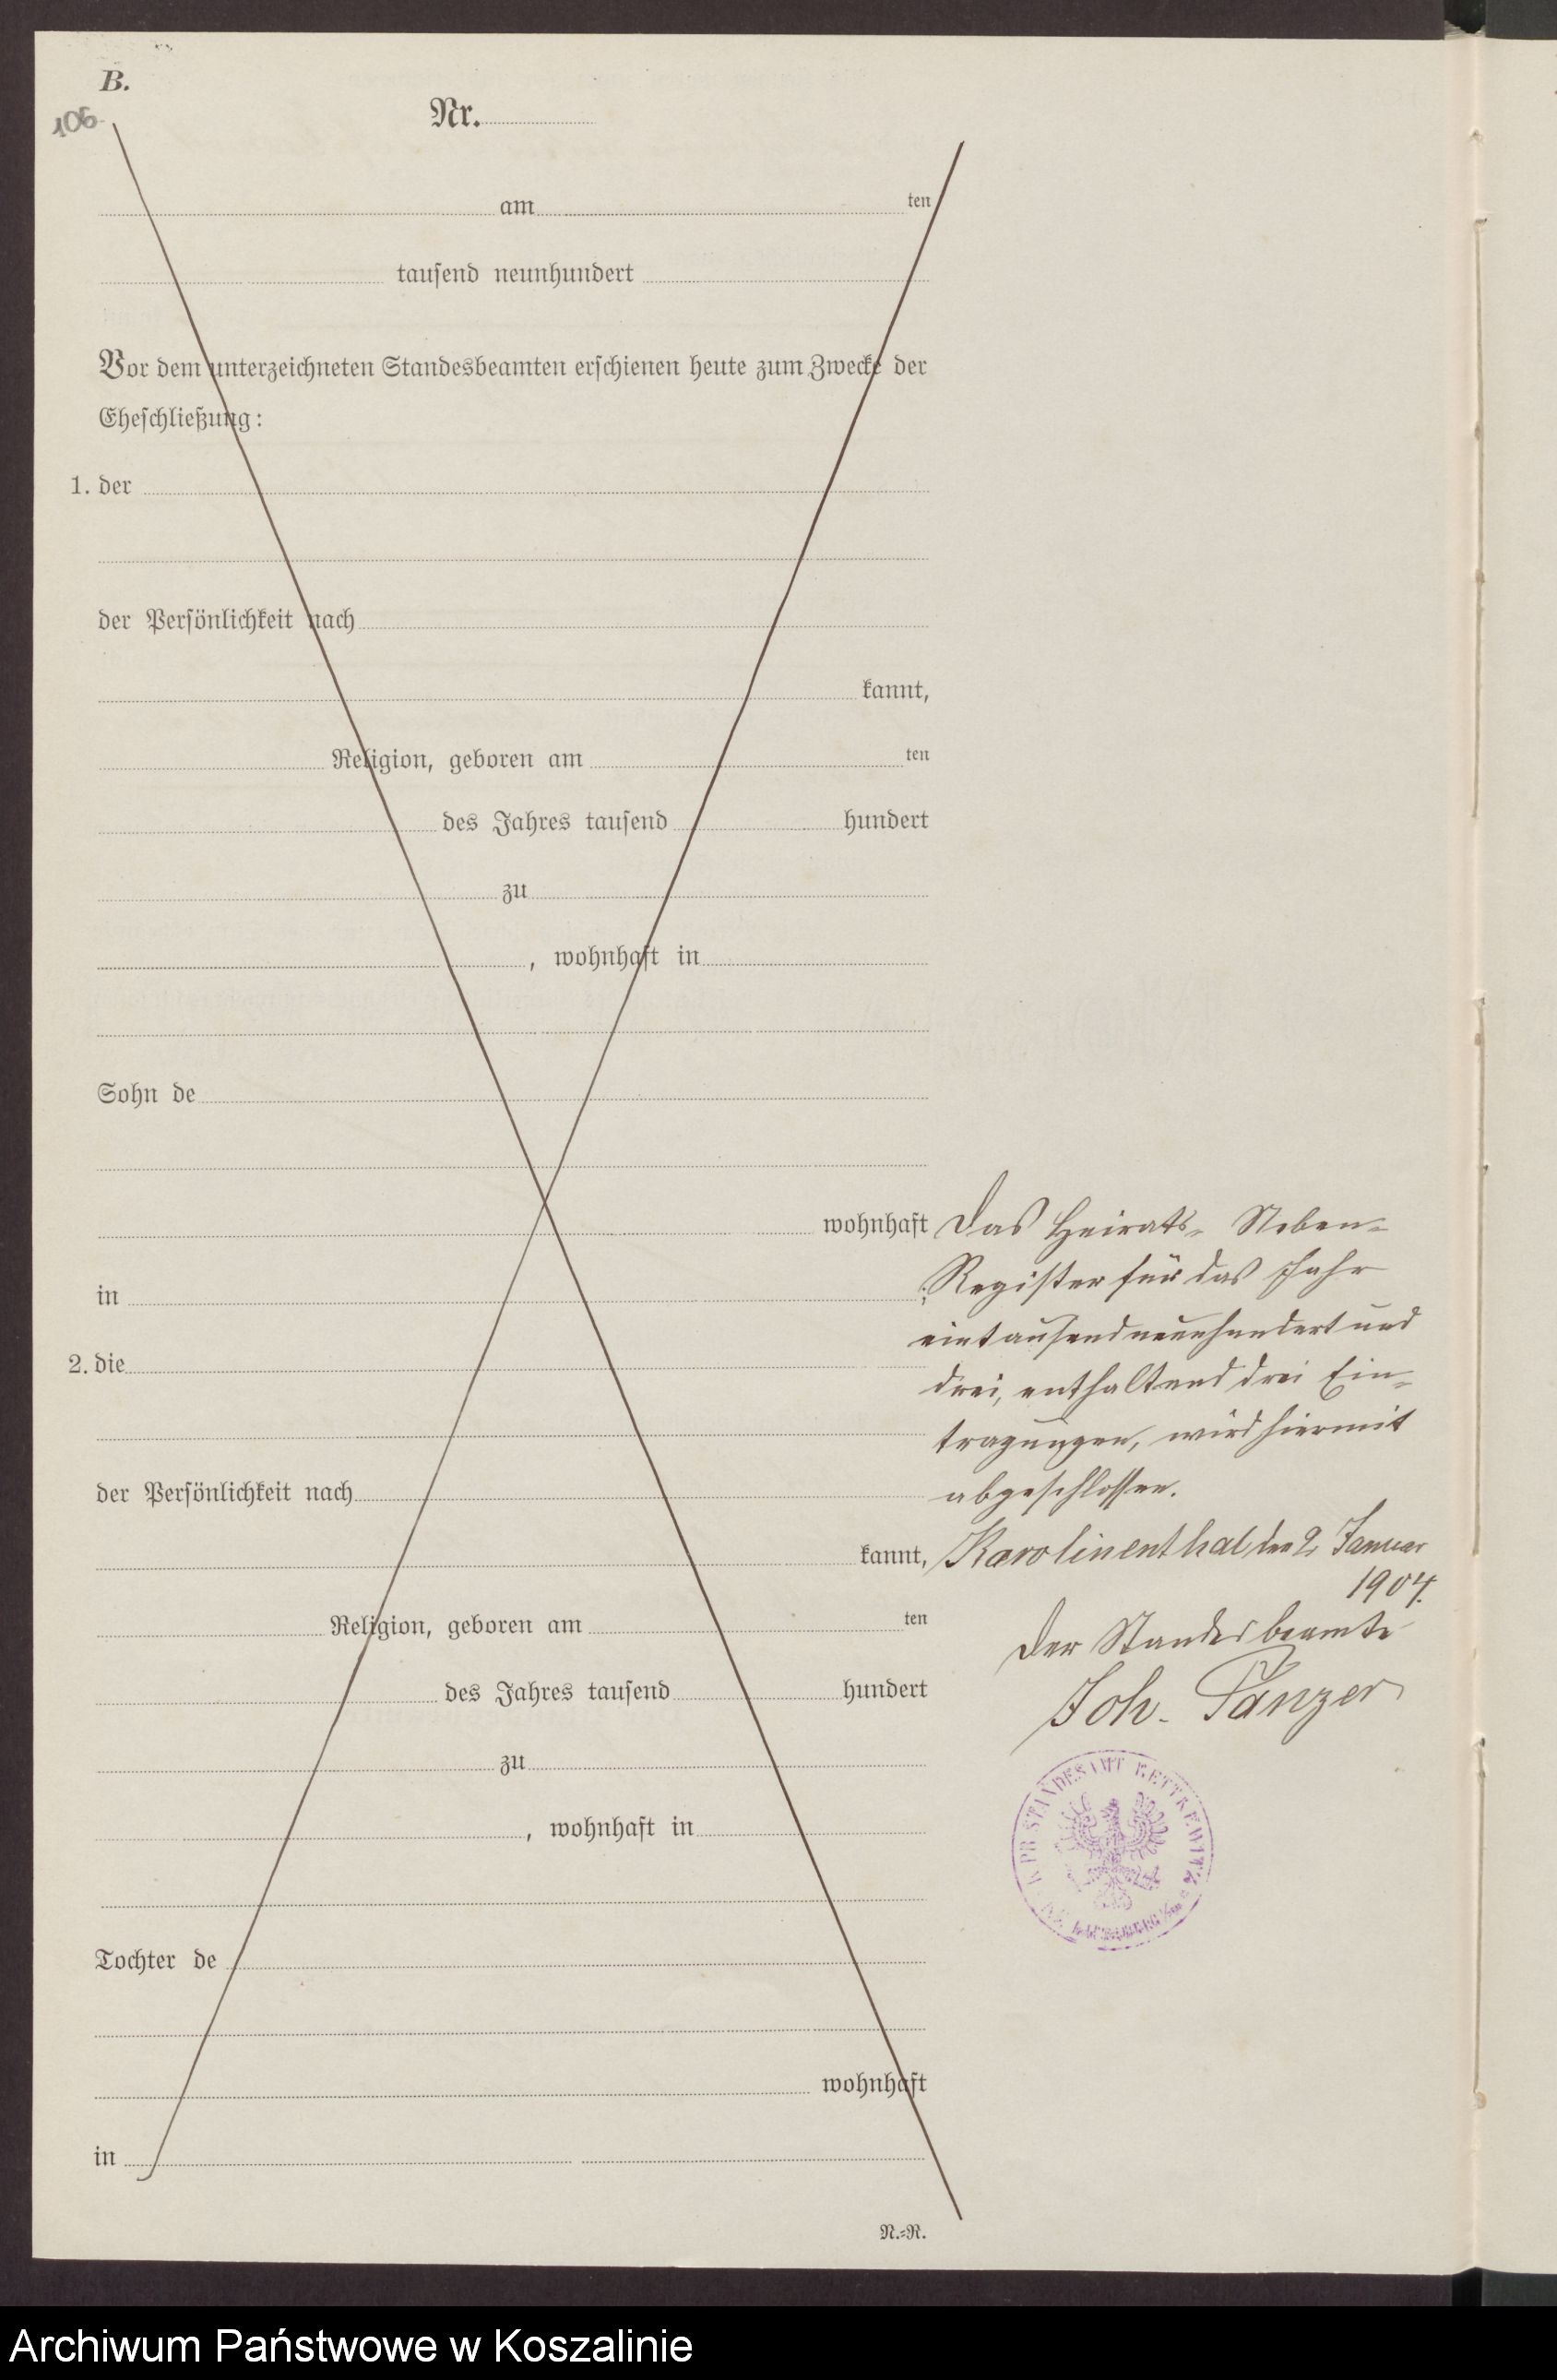 B.
106
Nr.
am ten
tausend neunhundert
Vor dem unterzeichneten Standesbeamten erschienen heute zum Zwecke der
Eheschließung:
1. der
der Persönlichkeit nach
kannt,
Religion, geboren am ten
des Jahres tausend hundert
zu
, wohnhaft in
Sohn de
wohnhaft
in
2. die
der Persönlichkeit nach
kannt,
Religion, geboren am ten
des Jahres tausend hundert
zu
, wohnhaft in
Tochter de
wohnhaft
in
N.=R.
Das Heirats- Neben-
Register für das Jahr
eintausendneunhundert und
drei, enthaltend drei Ein-
tragungen, wird hiermit
abgeschlossen.
Karolinenthal, den 2. Januar
1904.
Der Standesbeamte
Joh. Panzer
K. PR. STANDESAMT RETTKEWITZ
Archiwum Państwowe w Koszalinie